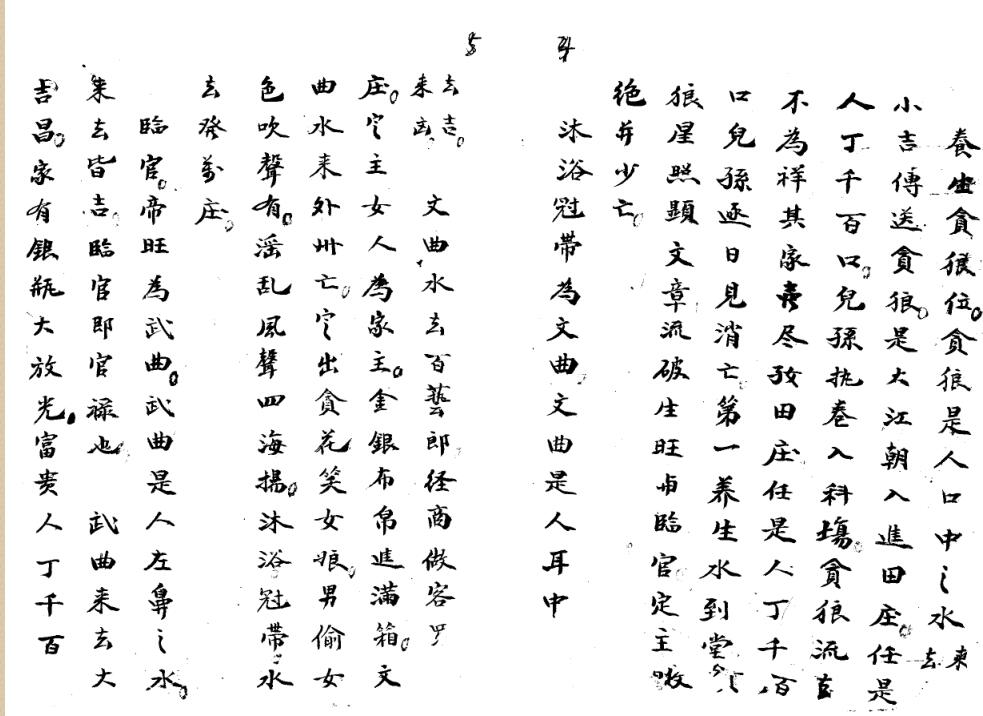 养生貪狼位。貪狼是人口中之水 来去
小吉傳送貪狼。是大江朝入進田庄。任是
人丁千百口。兒孫执卷入科塲。貪狼流去
不為祥其家卖尽好田庄任是人丁千百
口兒孫逐日見消亡。第一养生水到堂
狼星照顯文章流破生旺与臨官。定主
绝并少亡。
沐浴冠帶為文曲。文曲是人耳中
去吉。来凶。 文曲水去百藝郎经商做客
庄。定主女人為家主。金銀布帛進滿箱。文
曲水来外卅亡。定出貪花笑女娘。男偷女
色吹聲有。滛乱風聲四海揚。沐浴冠帶水
去發萬庄。
臨官。帝旺為武曲。武曲是人左鼻之水。
来去皆吉。臨官即官禄也。 武曲来去大
吉昌。家有銀瓶大放光。富贵人丁千百